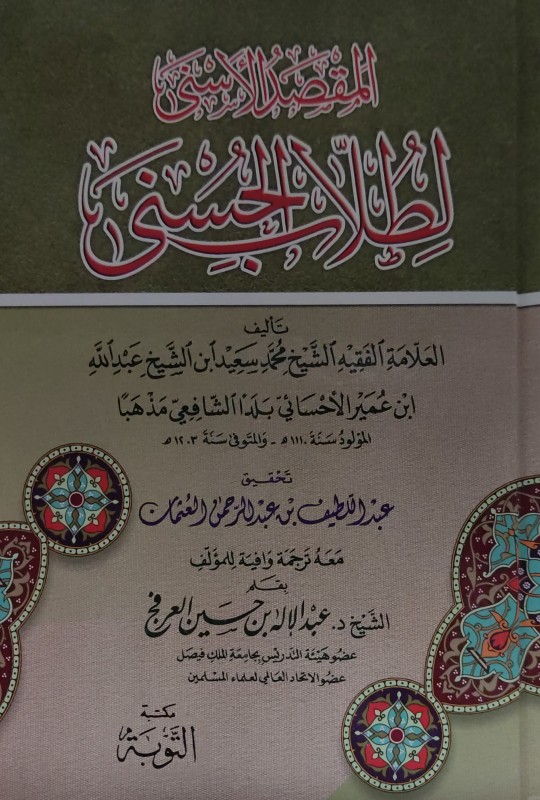 المقصد الأسنى
لطلاب الحسنى
تأليف
العلامة الفقيه الشيخ محمد سعيد ابن الشيخ عبد الله
ابن عمير الأحسائي بلدا الشافعي مذهبا
المولود سنة ١١١٠ هـ - والمتوفى سنة ١٢٠٣ هـ
تحقيق
عبد اللطيف بن عبد الرحمن العثمان
معه ترجمة وافية للمؤلف
بقلم
الشيخ د. عبد الإله بن حسين العرفج
عضو هيئة التدريس بجامعة الملك فيصل
عضو الاتحاد العالمي لعلماء المسلمين
مكتبة
التوبة